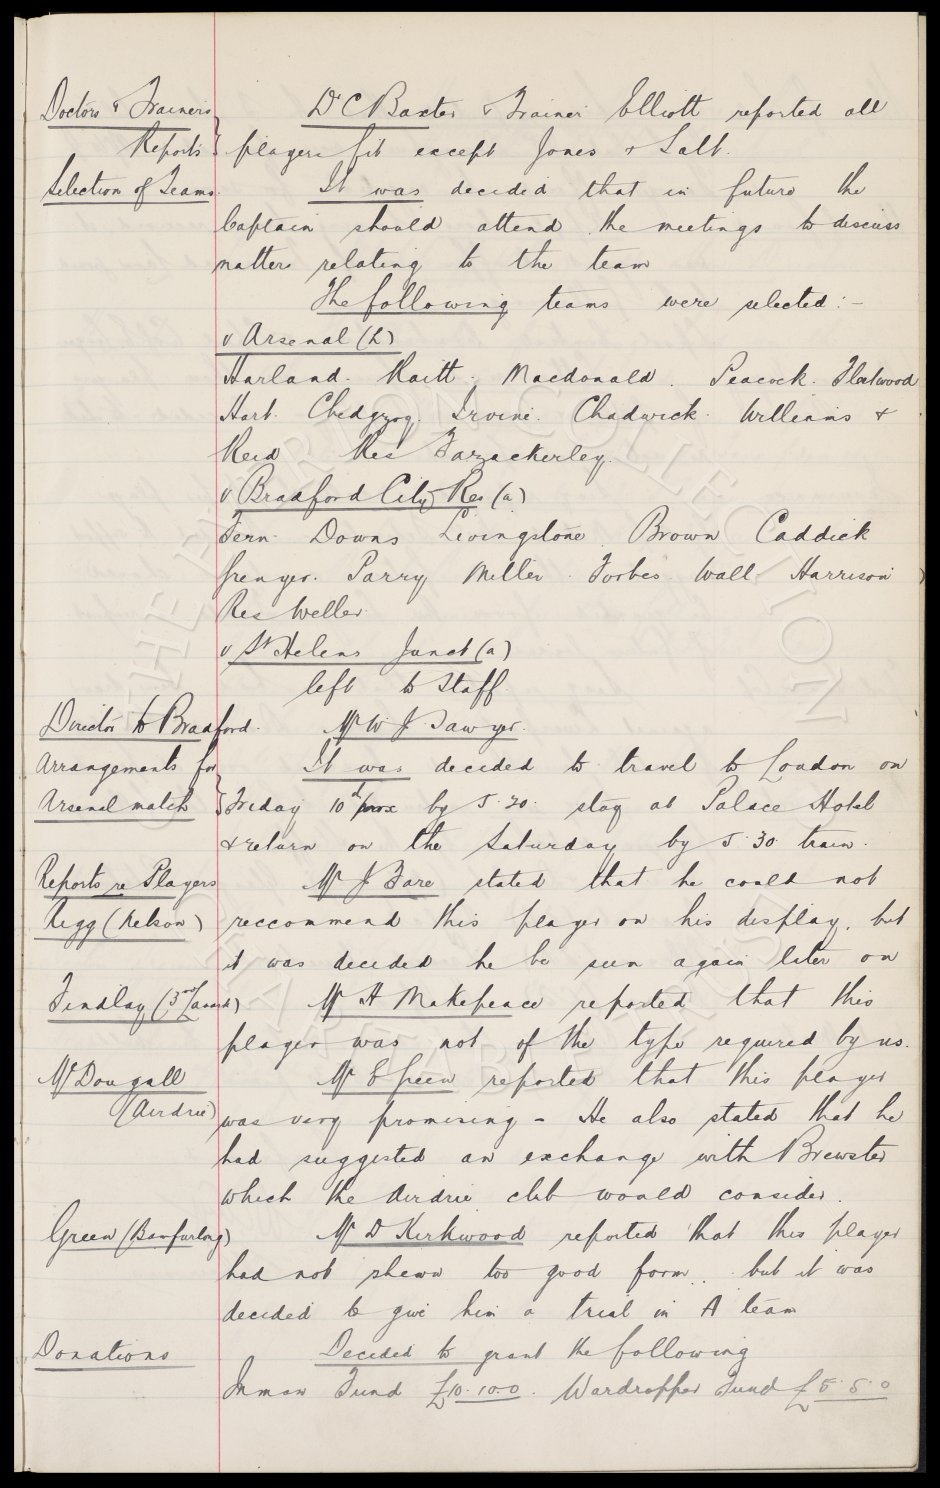 Doctors & Trainers Dr C Baxter & Trainer Elliott reported all
Reports } players fit except Jones & Salt.
Selection of Teams. It was decided that in future the
Captain should attend the meetings to discuss
matters relating to the team
The following teams were selected:-
v Arsenal (h)
Harland. Raitt. Macdonald. Peacock. Fleetwood
Hart. Chedgzoy. Irvine. Chadwick. Williams &
Reid Res Fazackerley.
v Bradford City Res (a)
Fern. Downs Livingstone. Brown Caddick
Grenyer. Parry Miller. Forbes. Wall Harrison
Res Weller
v St Helens Junct (a)
left to Staff.
Director to Bradford. Mr W J Sawyer.
Arrangements for It was decided to travel to London on
Arsenal match } Friday 10th by 5.20. stay at Palace Hotel
& return on the Saturday by 5.30 train.
Reports re Players Mr J Fare stated that he could not
Rigg (Nelson) reccommend this player on his display, but
it was decided he be seen again later on
Findlay (3rd Lanark) Mr H Makepeace reported that this
player was not of the type required by us.
McDougall Mr E Green reported that this player
(Airdrie) was very promising - He also stated that he
had suggested an exchange with Brewster
which the Airdrie club would consider.
Green (Bamfurlong) Mr D Kirkwood reported that this player
had not shewn too good form.. but it was
decided to give him a trial in A team
Donations Decided to grant the following
Inman Fund £10.10.0. Wardropper Fund £5.5.0
THE EVERTON COLLECTION